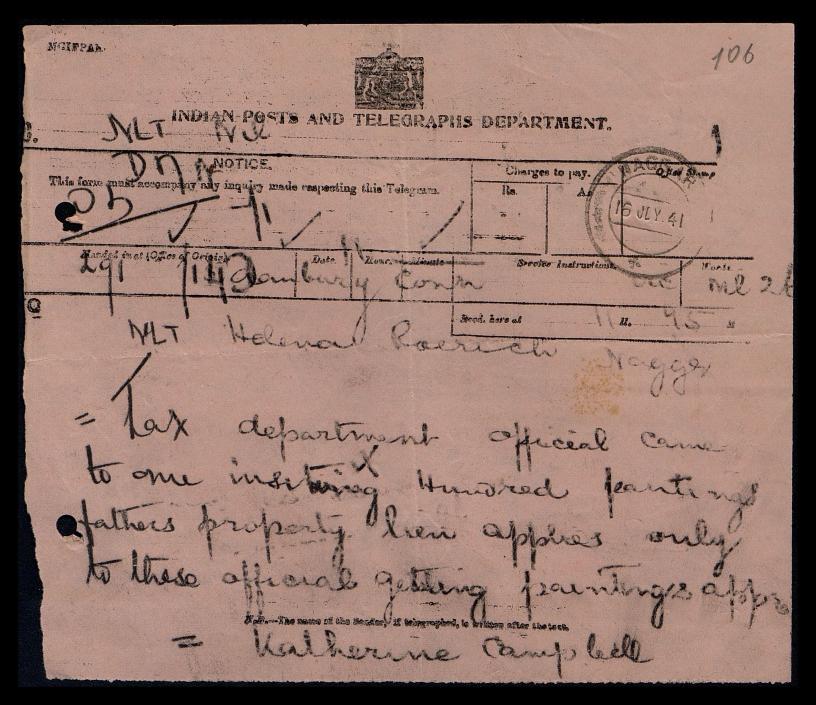 106
INDIAN POSTS AND TELEGRAPHS DEPARTMENT.
NLT
NOTICE.
This form must accompany any inquiry made respecting this Telegram.
Charges to pay.
Rs. As.
Office Stamp
16 JLY. 41
Handed in at (Office of Origin). Date Hour Minute Service Instructions. Words
Danbury Conn
Recd. here at H. M
NLT Helena Roerich Naggr
= Tax department official came
to one insisting Hundred paintings
fathers property lien applies only
to these official getting paintings appr
N.B.—The name of the Sender, if telegraphed, is written after the text.
= Katherine Campbell